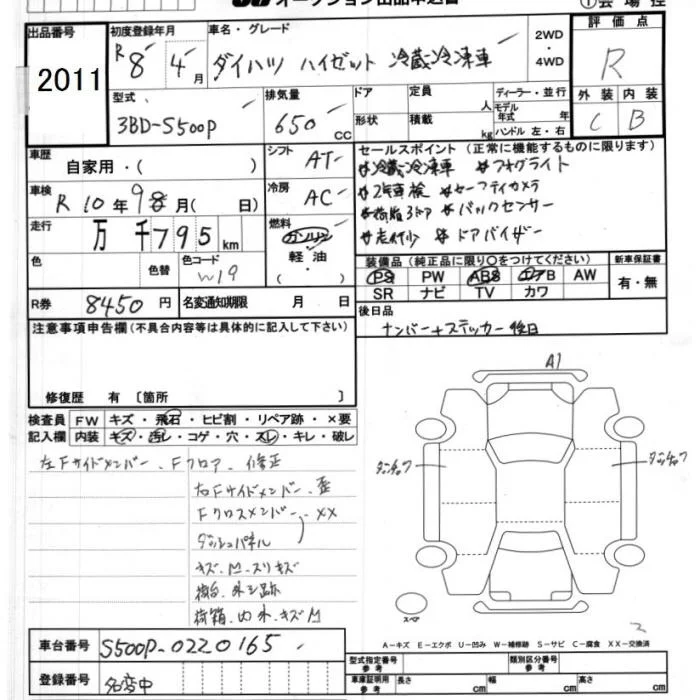 オークション出品申込書
出品番号 2011
初度登録年月 R 8年 4月
車名・グレード ダイハツ ハイゼット 冷蔵冷凍車
2WD・4WD
評価点 R
外装 C 内装 B
型式 3BD-S500P
排気量 650 cc
ドア 形状
定員 人
積載 kg
ディーラー・並行
モデル年式 年
ハンドル 左・右
車歴 自家用・( )
シフト AT
セールスポイント (正常に機能するものに限ります)
冷蔵冷凍車 フォグライト
2年車検 セーフティカメラ
バックセンサー
走行少 ドアバイザー
車検 R 10年 9月 ( 日)
冷房 AC
走行 万 千 795 km
燃料 ガソリン・軽油・( )
色 色替 色コード W19
装備品 (純正品に限り○をつけてください)
PS PW ABS エアB AW
SR ナビ TV カワ
新車保証書 有・無
R券 8450円 名変通知期限 月 日
後日品
ナンバー+ステッカー後日
注意事項申告欄(不具合内容等は具体的に記入して下さい)
修復歴 有 [箇所 ]
検査員記入欄
FW キズ・飛石・ヒビ割・リペア跡・×要
内装 キズ・汚レ・コゲ・穴・スレ・キレ・破レ
左Fサイドメンバー、Fフロア、修正
右Fサイドメンバー、歪
Fクロスメンバー、XX
ダッシュパネル
キズ、M、スリキズ
荷台、外シ跡
荷箱、内外、キズM
A1
スペア
A－キズ E－エクボ U－凹み W－補修跡 S－サビ C－腐食 XX－交換済
車台番号 S500P-0220165
登録番号 名変中
型式指定番号 参考
類別区分番号 参考
車庫証明用 参考 長さ cm 幅 cm 高さ cm